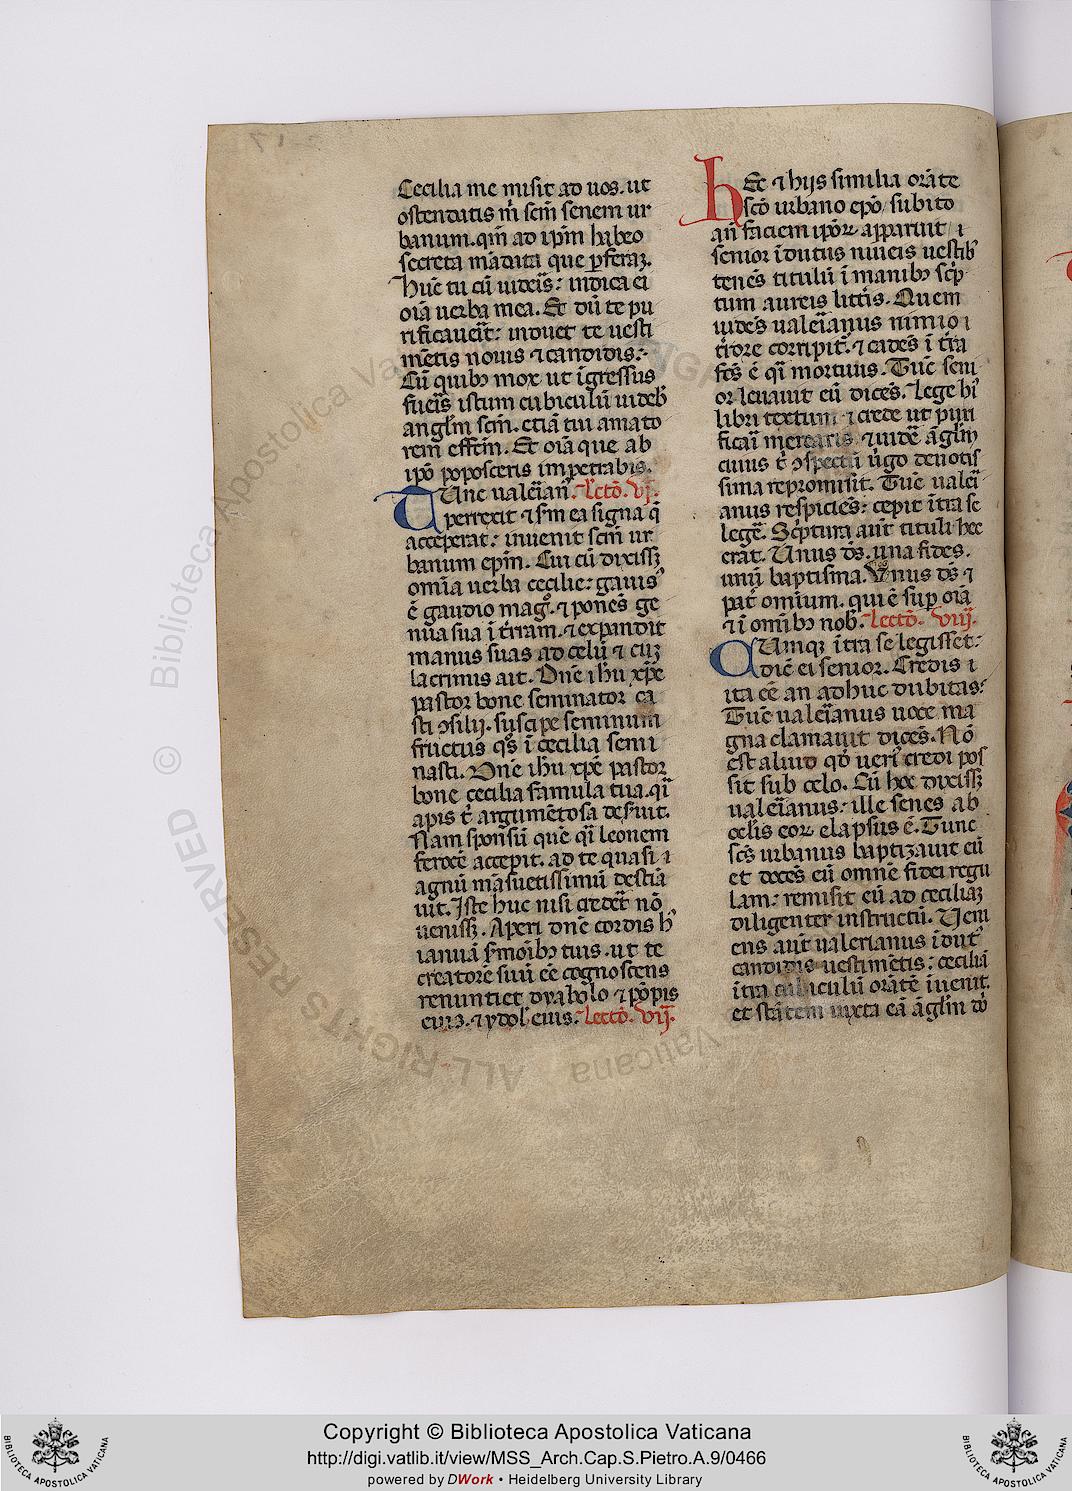 Cecilia me misit ad uos. ut
ostendatis m̄ scm̄ senem ur
banum. qm̄ ad ip̄m habeo
secreta mādata que perferaꝫ.
Hūc tu cū uideris: indica ei
oīa uerba mea. Et dū te pu
rificauerit: induet te uesti
mētis nouis ⁊ candidis:
Cū quibꝫ mox ut īgressus
fueris istum cubiculū uidebis
anglm̄ scm̄. etiā tui amato
rem effctm̄. Et oīa que ab
ipō poposceris impetrabis.
Tunc ualeīan9. Lectō. vj.
perrexit ⁊ scđm ea signa q̄
acceperat: inuenit scm̄ ur
banum ep̄m. Cui cū dixissꝫ
omīa uerba cecilie: gauis9
ē gaudio magͦ. ⁊ ponēs ge
nua sua ī t̄rram. ⁊ expandit
manus suas ad celū ⁊ cuꝫ
lacrimis ait. Dn̄e ih̄u xp̄e
pastor bone seminator ca
sti ↄsilij. suscipe seminum
fructus q̄s ī cecilia semi
nasti. Dn̄e ih̄u xp̄e pastor
bone cecilia famula tua. q̄i
apis t̄ argumētosa deseruit.
Nam sponsū quē q̄i leonem
ferocē accepit. ad te quasi
agnū māsuetissimū destina
uit. Iste huc nisi crederet nō
uenissꝫ. Aperi dn̄e cordis h9
ianuā sermōibꝫ tuis. ut te
creatorē suū eē cognoscens
renuntiet dyabolo ⁊ pōpis
eius. ⁊ ydolis eius. Lectō. vij.
hEc ⁊ hijs similia orāte
scō urbano epō/ subito
an̄ faciem ipōꝝ apparuit
senior īdutus niueis uestibꝫ
tenēs titulū ī manibꝫ scp̄
tum aureis litt̄is. Quem
uidēs ualeīanus nimio
t̄rore corripit̄. ⁊ cadēs ī t̄ra
fctꝰ ē q̄i mortuus. Tūc seni
or leuauit eū dicēs. Lege h9
libri textum ⁊ crede ut puri
ficari merearis ⁊ uidē āglm̄
cuius t̄ ↄspectū uirgo deuotis
sima repromisit. Tūc ualeī
anus respiciēs: cepit ītra se
legē. Scp̄tura aut̄ tituli hec
erat. Unus dš. una fides.
unū baptisma. Unus dš ⁊
pat̄ omīum. qui ē super oīa
⁊ ī omībꝫ nob̄. Lectō. viij.
CUmqꝫ ītra se legisset:
dic̄ ei senior. Credis
ita eē an adhuc dubitas:
Tūc ualeīanus uoce ma
gna clamauit dicēs. Nō
est aliud qđ ueri9 credi pos
sit sub celo. Cū hec dixissꝫ
ualeīanus: ille senes ab
oclis eoꝝ elapsus ē. Tunc
scš urbanus baptizauit eū
et docēs eū omnē fidei regu
lam: remisit eū ad ceciliaꝫ
diligenter instructū. Veni
ens aut̄ ualerianus īdut9
candidis uestimētis: ceciliā
ītra cubiculū orātē īuenit.
et stātem iuxta eā āglm̄ dō
Copyright © Biblioteca Apostolica Vaticana
http://digi.vatlib.it/view/MSS_Arch.Cap.S.Pietro.A.9/0466
powered by DWork • Heidelberg University Library